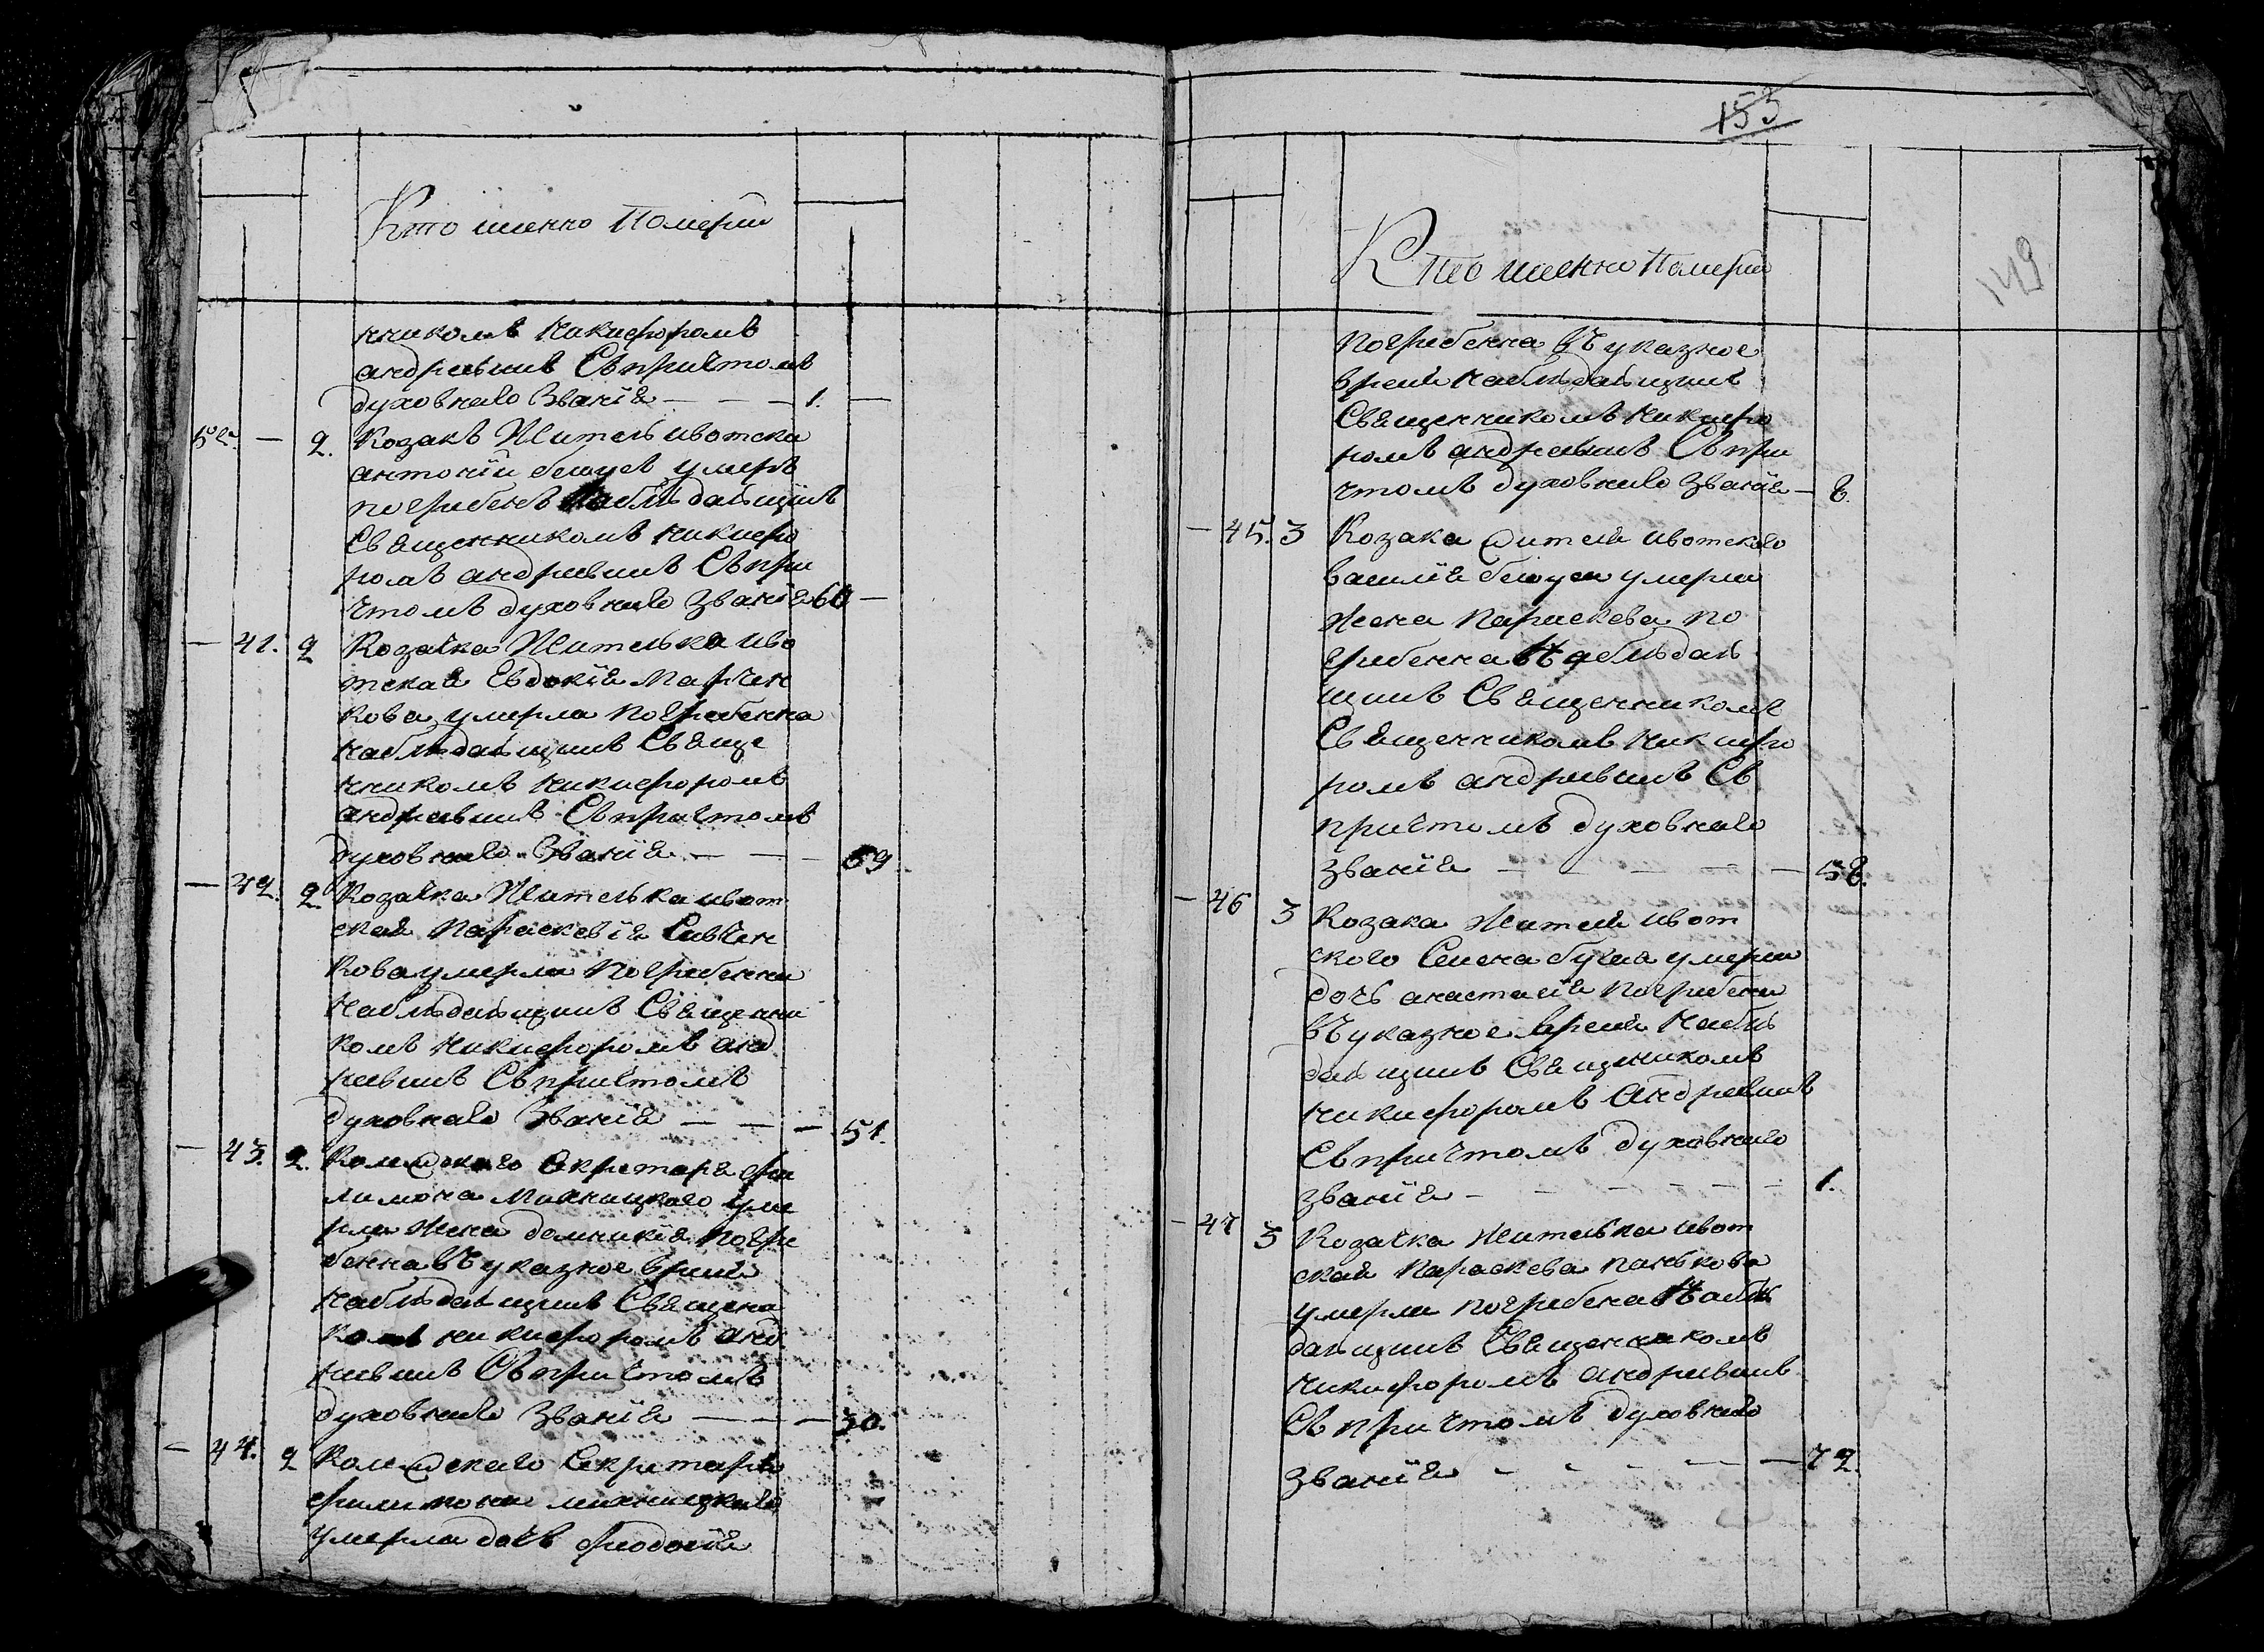 Кто именно Померли
нникомъ Никифоромъ
андриевимъ Съпричтомъ
духовнаго Званїя — — — 1. —
52. — 2. Козакъ Житель ивотски
антонїй умеръ
погребенъ Наблюдающимъ
Священникомъ Никифо
ромъ андриевимъ Съпри
чтомъ духовнаго званїя 60 —
— 41. 2 Козачка Жителька иво
тская Евдокїя Марчен
кова умерла погребенна
наблюдающимъ Свяще
нникомъ Никифоромъ
андриевимъ Съпричтомъ
духовнаго Званїя — — — 69
— 42. 2. Козачка Жителька ивот
ская Параскевїя Савчен
кова умерла погребенна
наблюдающимъ Священи
комъ Никифоромъ анд
риевимъ Съпричтомъ
духовнаго Званїя — — — 51.
— 43. 2. Колежскаго Секритаря фи
лимона умер
рла Жена домникїя погре
бенна вЪуказное время
наблюдающимъ Священи
комъ никифоромъ анд
риевимъ Съпричтомъ
духовнаго Званїя — — — 30.
— 44. 2 Колежскаго Секритаря
филимона
умерла дочь феодосїя
153
149
Кто именно Померли
погребенна вЪуказное
время наблюдающимъ
Священникомъ никифо
ромъ андриевимъ Съпри
чтомъ духовнаго Званїя — 8.
— 45. 3 Козака Жителя ивотскаго
василїя умерла
Жена Параскева по
гребенна Наблюдаю
щимъ Священникомъ
Священникомъ никифо
ромъ андриевимъ Съ
причтомъ духовнаго
званїя — — — — 58.
— 46 3 Козака Жителя ивот
ского Семена умерла
дочь анастасїя погребена
вЪуказное время наблю
дающимъ Священикомъ
никифоромъ андриевимъ
Съпричтомъ духовнаго
званїя — — — — — — 1.
— 47 3 Козачка Жителька ивот
ская Параскева панькова
умерла погребена Наблю
дающимъ Священникомъ
никифоромъ андриевимъ
Съ причтомъ духовнаго
званїя — — — — — 72.